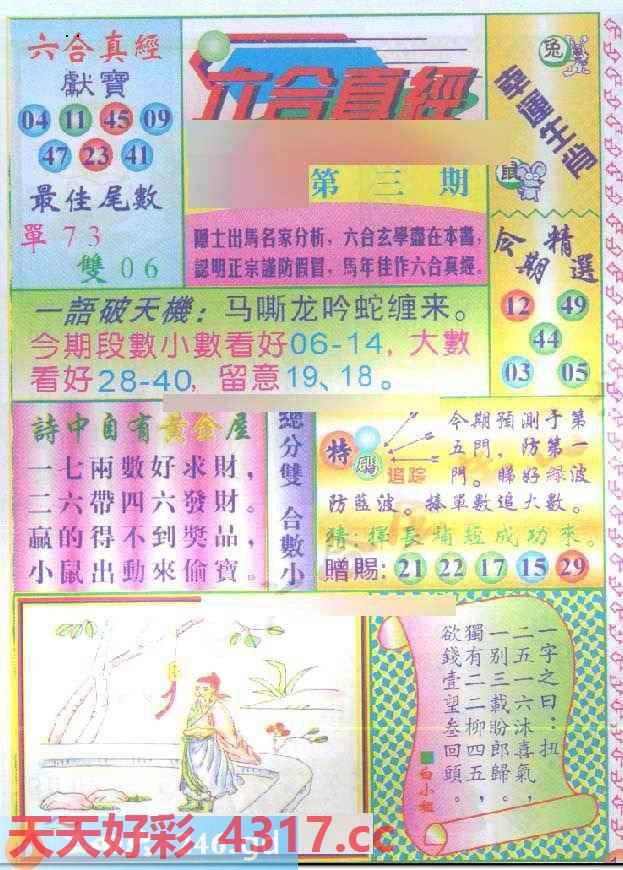 六合真經
獻寶
04 11 45 09
47 23 41
最佳尾數
單73
雙06
六合真經
第三期
隱士出馬名家分析,六合玄學盡在本書,
認明正宗謹防假冒,馬年佳作六合真經。
兔
幸運生肖
鼠
今期精選
12 49
44
03 05
一語破天機:马嘶龙吟蛇缠来。
今期段數小數看好06-14,大數
看好28-40,留意19、18。
詩中自有黃金屋
一七兩數好求財,
二六帶四六發財。
贏的得不到獎品,
小鼠出動來偷寶。
總分雙 合數小
特碼
追踪
今期預測于第
五門,防第一
門。睇好綠波
防藍波。捧單數追大數。
成功來。
贈賜:21 22 17 15 29
一字之曰:扭
二五一六沐喜氣,
一别三載盼郎歸。
獨有二二柳四五,
欲錢壹望叁回頭。
白小姐
天天好彩 4317.cc